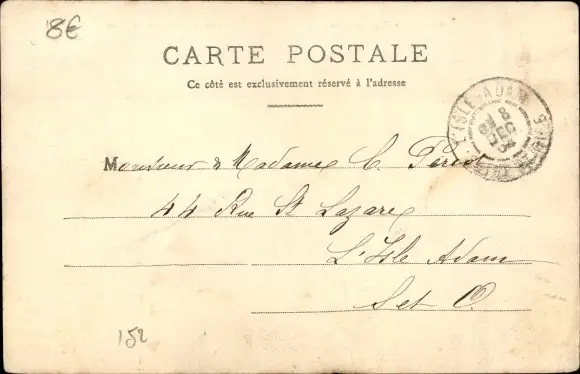 8€
CARTE POSTALE
Ce côté est exclusivement réservé à l'adresse
L'ISLE-ADAM
Monsieur & Madame C.
44 Rue St Lazare
L'Isle Adam
S et O.
152